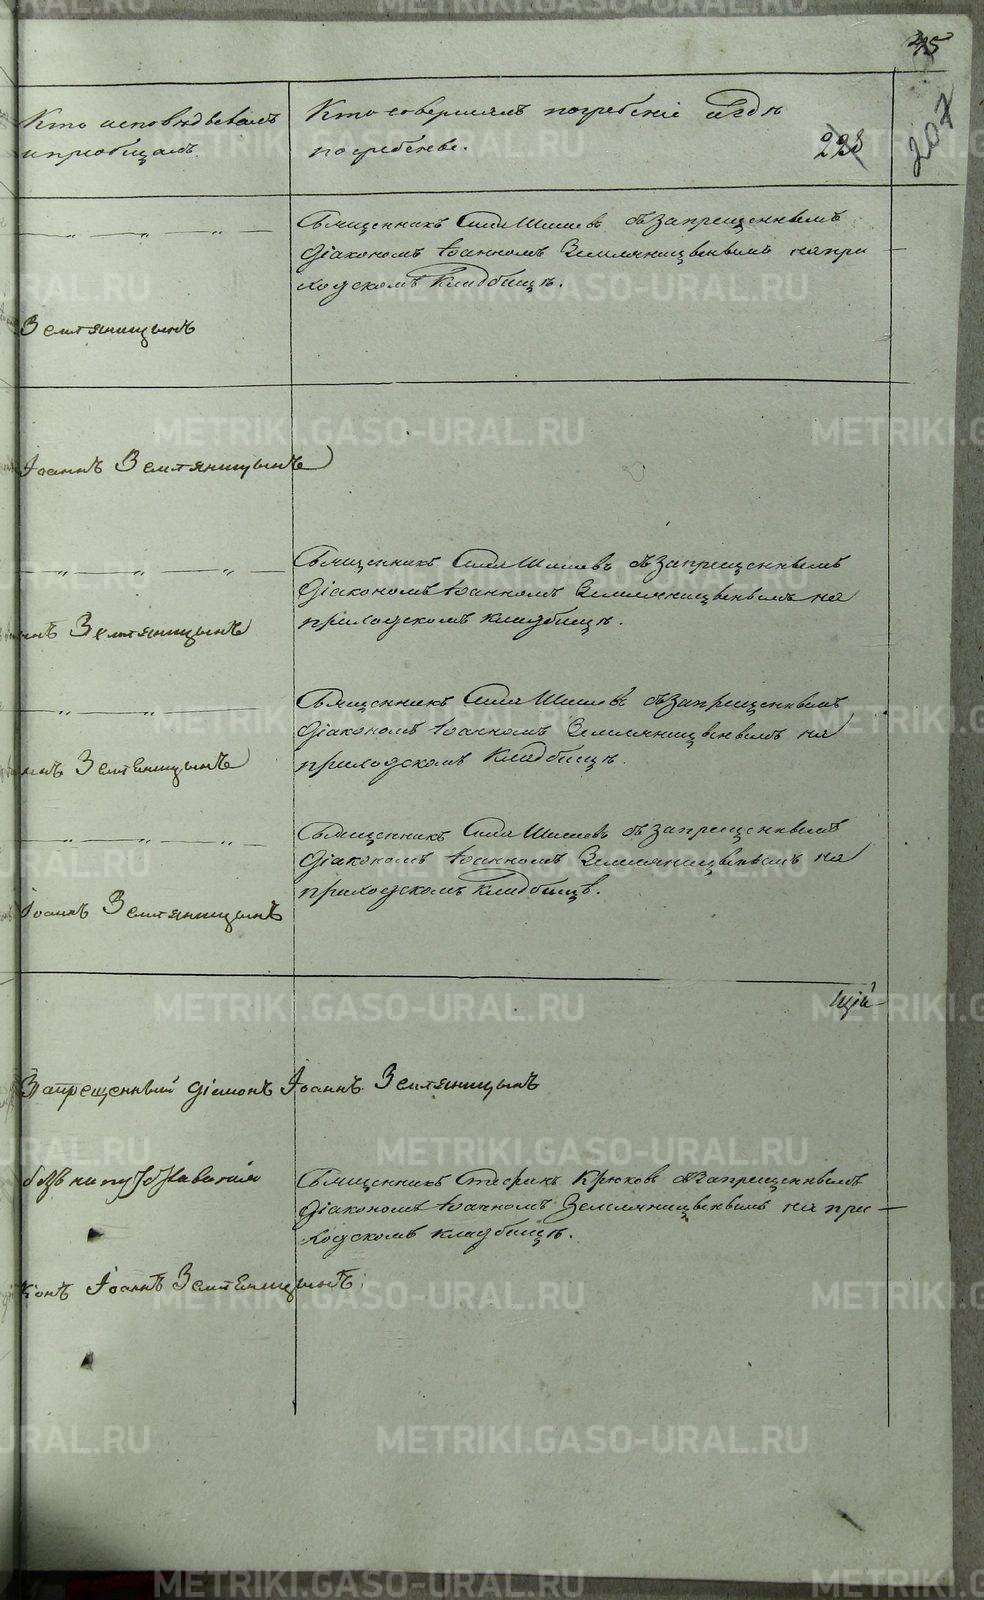 45
Кто исповѣдывалъ
и приобщалъ.
Кто совершалъ погребеніе и гдѣ
погребены.
223
207
Священникъ Сила Шишевъ съ запрещеннымъ
діакономъ Іоанномъ Земляницынымъ на при
ходскомъ кладбищѣ.
Земляницынъ
Іоаннъ Земляницынъ
Священникъ Сила Шишевъ съ запрещеннымъ
діакономъ Іоанномъ Земляницынымъ на
приходскомъ кладбищѣ.
Земляницынъ
Священникъ Сила Шишевъ съ запрещеннымъ
діакономъ Іоанномъ Земляницынымъ на
приходскомъ кладбищѣ.
Земленицынъ
Священникъ Сила Шишевъ съ запрещеннымъ
діакономъ Іоанномъ Земляницынымъ на
приходскомъ кладбищѣ.
Іоаннъ Земляницынъ
щій
Запрещенный діаконъ Іоаннъ Земляницынъ
безъ напутствованія
Священникъ Стефанъ Крюковъ съ запрещеннымъ
діакономъ Іоанномъ Земляницынымъ на при
ходскомъ кладбищѣ.
конъ Іоаннъ Земленицынъ
METRIKI.GASO-URAL.RU